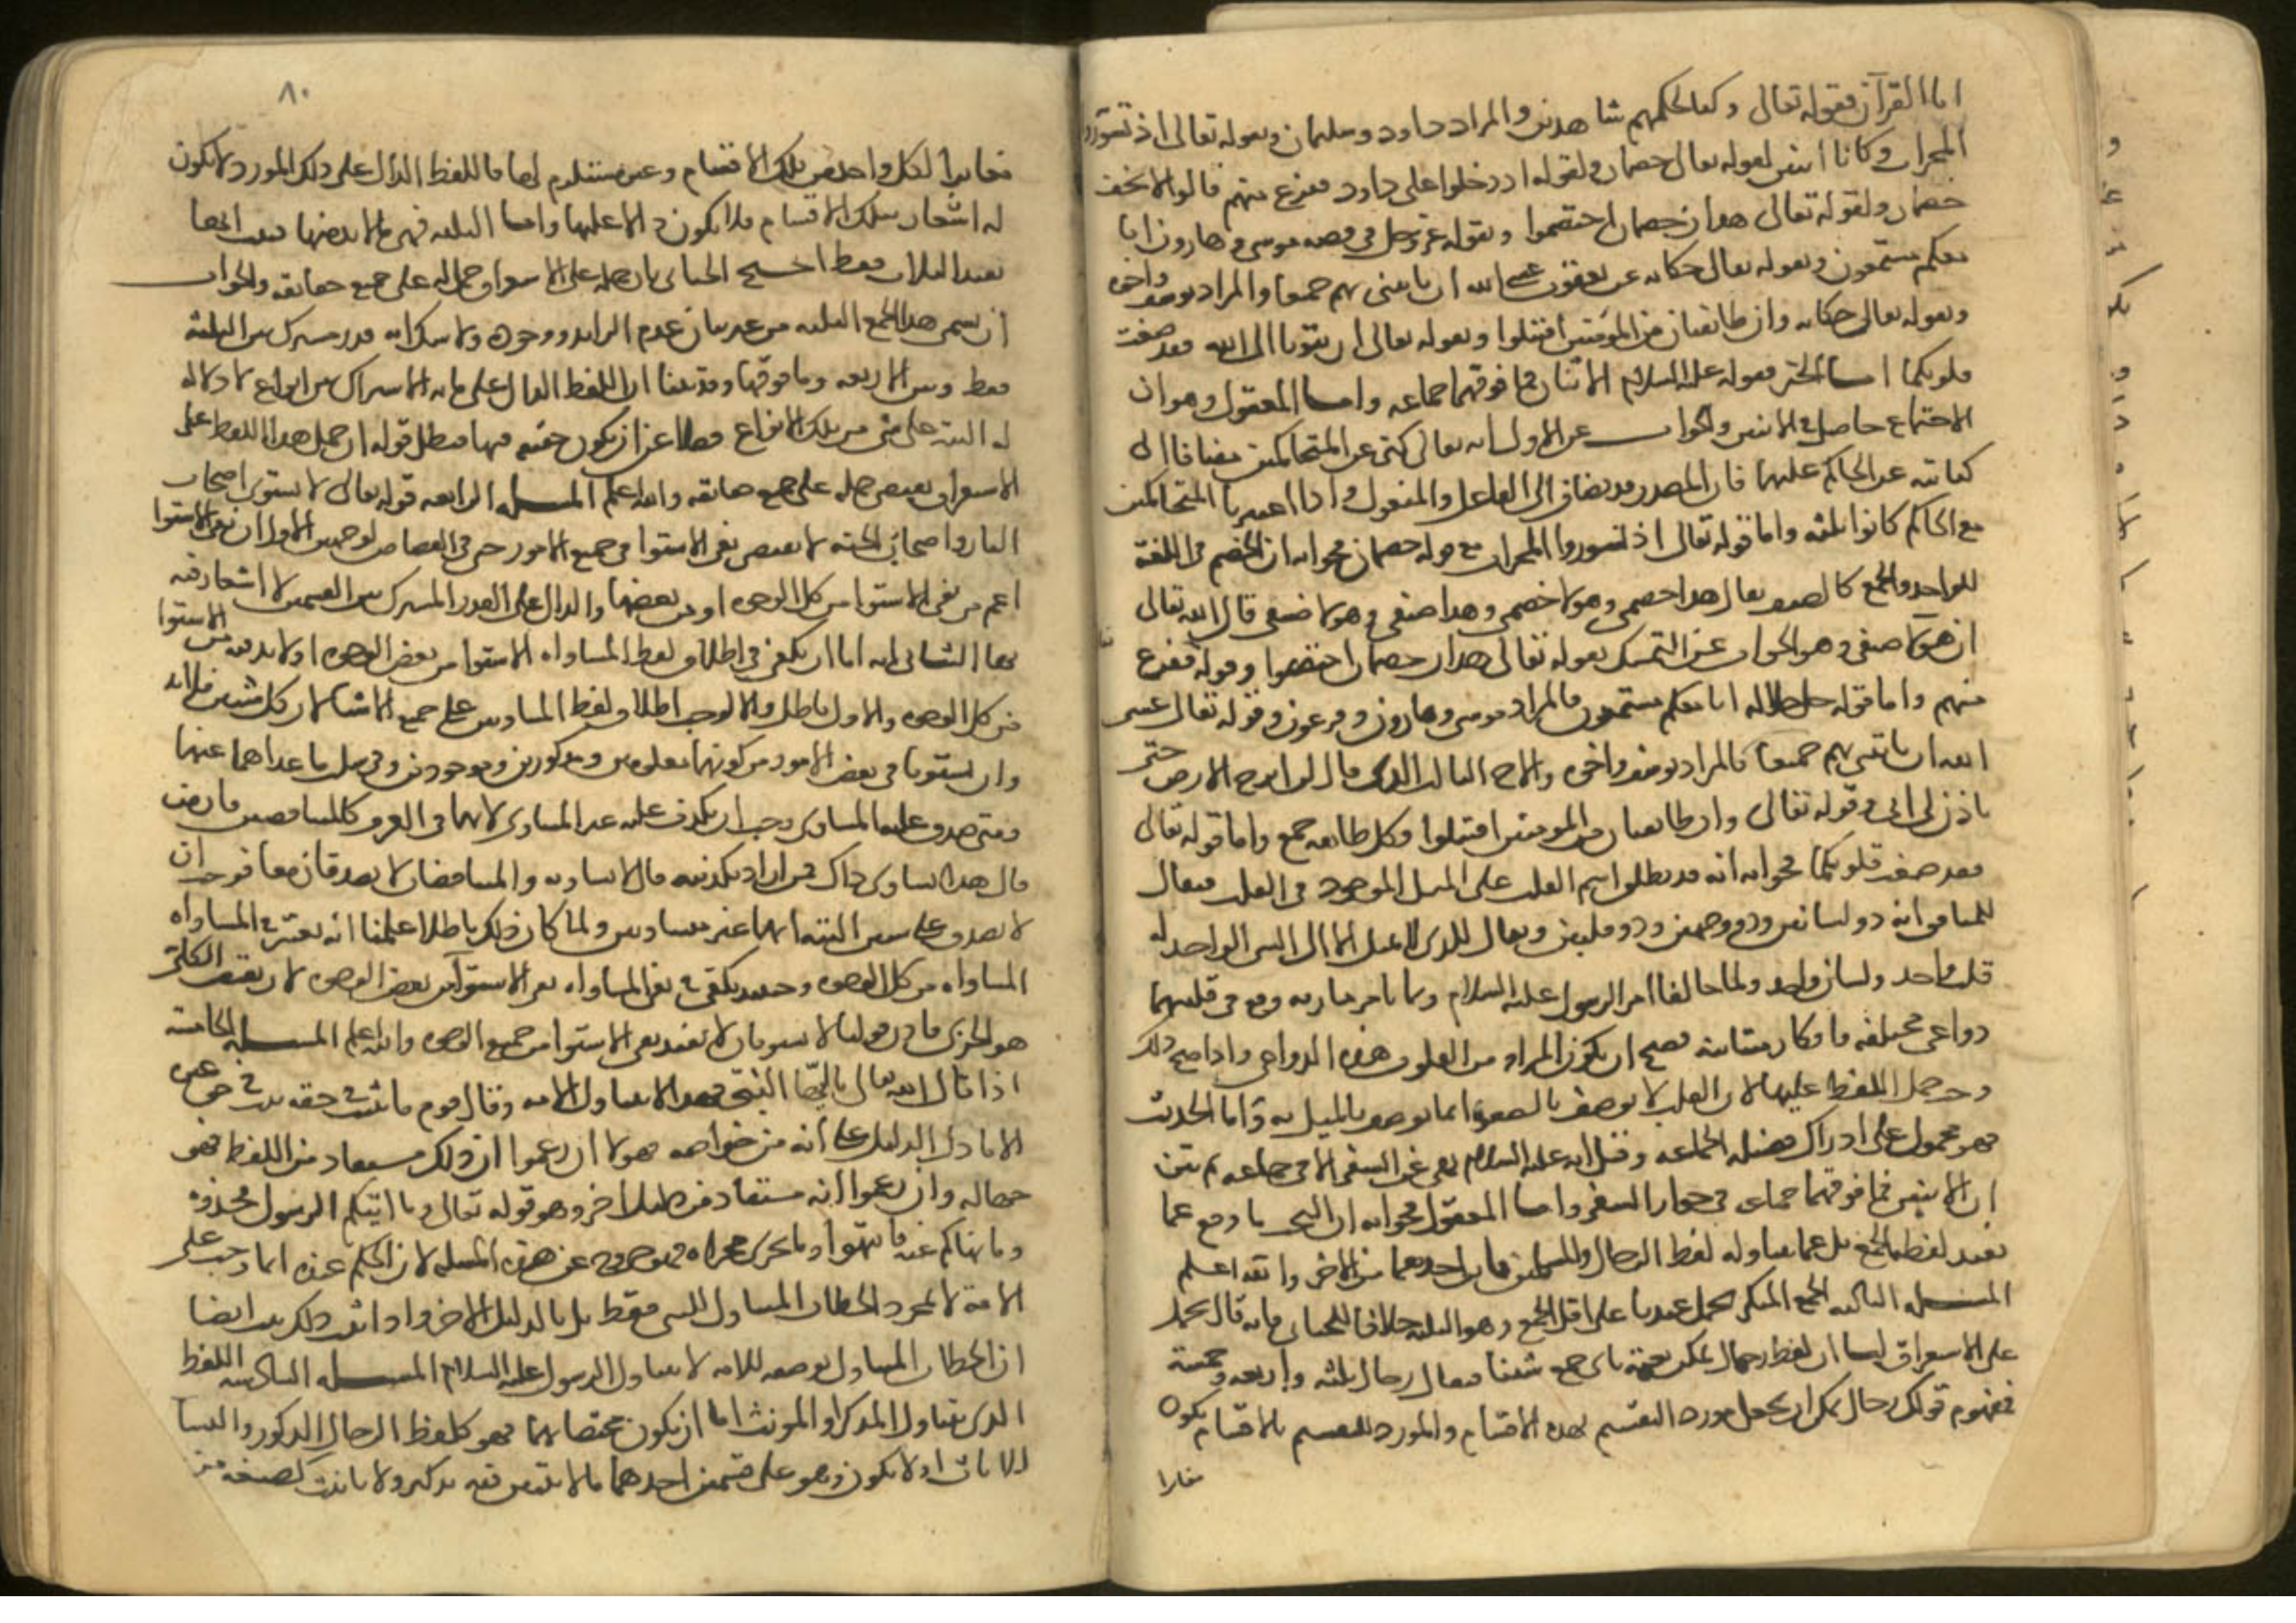 اما القرآن فقوله تعالى وكنا لحكمهم شاهدين والمراد داود وسليمان وبقوله تعالى اذ تسوروا
المحراب وكانا اثنين لقوله تعالى خصمان ولقوله اذ دخلوا على داود ففزع منهم قالوا لا تخف
خصمان ولقوله تعالى هذان خصمان اختصموا وبقوله عز وجل في قصة موسى وهارون انا
معكم مستمعون وبقوله تعالى حكاية عن يعقوب عسى الله ان ياتيني بهم جميعا والمراد يوسف واخوه
وبقوله تعالى حكاية وان طائفتان من المؤمنين اقتتلوا وبقوله تعالى ان تتوبا الى الله فقد صغت
قلوبكما اما الخبر فقوله عليه السلام الاثنان فما فوقهما جماعة واما المعقول وهو ان
الاجتماع حاصل في الاثنين والجواب عن الاول انه تعالى كنى عن المتحاكمين مضافا الى
كنايته عن الحاكم عليهما فان المصدر قد يضاف الى الفاعل والمفعول واذا اعتبرنا المتحاكمين
مع الحاكم كانوا ثلثة واما قوله تعالى اذ تسوروا المحراب مع قوله خصمان فجوابه ان الخصم في اللغة
للواحد والجمع كالضيف يقال هذا خصمي وهولا خصمي وهذا ضيفي وهولا ضيفي قال الله تعالى
ان هولا ضيفي وهو الجواب عن التمسك بقوله تعالى هذان خصمان اختصموا وقوله ففزع
منهم واما قوله جل جلاله انا معكم مستمعون فالمراد موسى وهارون وفرعون وقوله تعالى عسى
الله ان ياتيني بهم جميعا فالمراد يوسف واخوه والاخ الثالث الذي قال لن ابرح الارض حتى
ياذن لي ابي وقوله تعالى وان طائفتان من المومنين اقتتلوا فكل طائفة جمع واما قوله تعالى
فقد صغت قلوبكما فجوابه انه قد يطلق اسم القلب على الميل الموجود في القلب فيقال
للمنافق انه ذو لسانين وذو وجهين وذو قلبين ويقال للذي لا يميل الا الى الشي الواحد له
قلب واحد ولسان واحد ولما خالفا امر الرسول عليه السلام وهما بامر مارية وقع في قلبيهما
دواعي مختلفة وافكار متباينة فصح ان يكون المراد من القلوب هذه الدواعي واذا صح ذلك
وجب حمل اللفظ عليها لان القلب لا يوصف بالصغو انما يوصف بالميل به واما الحديث
فهو محمول على ادراك فضيلة الجماعة وقيل انه عليه السلام نهى عن السفر الا في جماعة ثم بين
ان الاثنين فما فوقهما جماعة في جواز السفر واما المعقول فجوابه ان البحث ما وقع عما
يفيد لفظة الجمع بل عما يتناوله لفظ الرجال والمسلمين فاين احدهما من الاخر والله اعلم
المسئلة الثالثة الجمع المنكر يحمل عندنا على اقل الجمع وهو الثلثة خلافا للجبائي فانه قال يحمل
على الاستغراق لنا ان لفظ رجال يمكن نعته باي جمع شئنا فيقال رجال ثلثة واربعة وخمسة
فمفهوم قولك رجال يمكن ان يجعل مورد التقسيم لهذه الاقسام والمورد للتقسيم بالاقسام يكون
مغايرا
٨٠
مغايرا لكل واحد من تلك الاقسام وغير مستلزم لها فاللفظ الدال على ذلك المورد لا يكون
له اشعار بتلك الاقسام فلا يكون دالا عليها واما الثلثة فهي مما لا بد منها فثبت انها
تفيد الثلاث فقط احتج الجبائي بان حمله على الاستغراق حمل له على جميع حقائقه والجواب
ان يسمى هذا الجمع الثلثة من غير بيان عدم الزايد ووجوده ولا شك انه قدر مشترك بين الثلثة
فقط وبين الاربعة وما فوقها وقد بينا ان اللفظ الدال على ما به الاشتراك بين انواع لا دلالة
له البتة على شي من تلك الانواع فضلا عن ان يكون حقيقة فيها فبطل قوله ان حمل هذا اللفظ على
الاستغراق يقتضي حمله على جميع حقايقه والله اعلم المسئلة الرابعة قوله تعالى لا يستوي اصحاب
النار واصحاب الجنة لا يقتضي نفي الاستوا في جميع الامور حتى في القصاص لوجهين الاول ان نفي الاستوا
اعم من نفي الاستوا من كل الوجوه او من بعضها والدال على القدر المشترك بين القسمين لا اشعار فيه
بهما الثاني انه اما ان يكفي في اطلاق لفظ المساواه الاستوا من بعض الوجوه او لا بد فيه من الاستوا
من كل الوجوه والاول باطل والا لوجب اطلاق لفظ المتساويين على جميع الاشيا لان كل شيئين فلا بد
وان يستويا في بعض الامور من كونهما معلومين ومذكورين وموجودين وفي سلب ما عداهما عنهما
ومتى صدق عليه المساوي وجب ان يكذف عليه غير المساوي لانهما في العرف كالمتناقضين فان من
قال هذا يساوي ذاك فمن اراد تكذيبه قال لا يساويه والمتناقضان لا يصدقان معا فوجب ان
لا يصدق على شيين البتة انهما غير متساويين ولما كان ذلك باطلا علمنا انه يعتبر في المساواه
المساواه من كل الوجوه وحينئذ يكفي في نفي المساواه نفي الاستوا من بعض الوجوه لان نقيض الكلي
هو الجزئي فاذن قولنا لا يستويان لا يفيد نفي الاستوا من جميع الوجوه والله اعلم المسئلة الخامسة
اذا قال الله تعالى يا ايها النبي فهذا لا يتناول الامة وقال قوم ما ثبت في حقه ثبت في حق غيره
الا ما دل الدليل على انه من خواصه فهولا ان زعموا ان ذلك مستفاد من اللفظ فهو
جهالة وان زعموا انه مستفاد من دليل اخر وهو قوله تعالى وما اتيكم الرسول فخذوه
وما نهاكم عنه فانتهوا وما يجري مجراه فهو خروج عن هذه المسئلة لان الحكم عنده انما وجب على
الامة لا بمجرد الخطاب المتناول للنبي فقط بل بالدليل الاخر واذا ثبت ذلك ثبت ايضا
ان الخطاب المتناول بوضعه للامة لا يتناول الرسول عليه السلام المسئلة السادسة اللفظ
الذي يتناول المذكر او المونث اما ان يكون مختصا بهما فهو كلفظ الرجال للذكور والنسا
للاناث او لا يكون وهو على قسمين احدهما ما لا يتبين فيه تذكير ولا تانيث كصيغة من